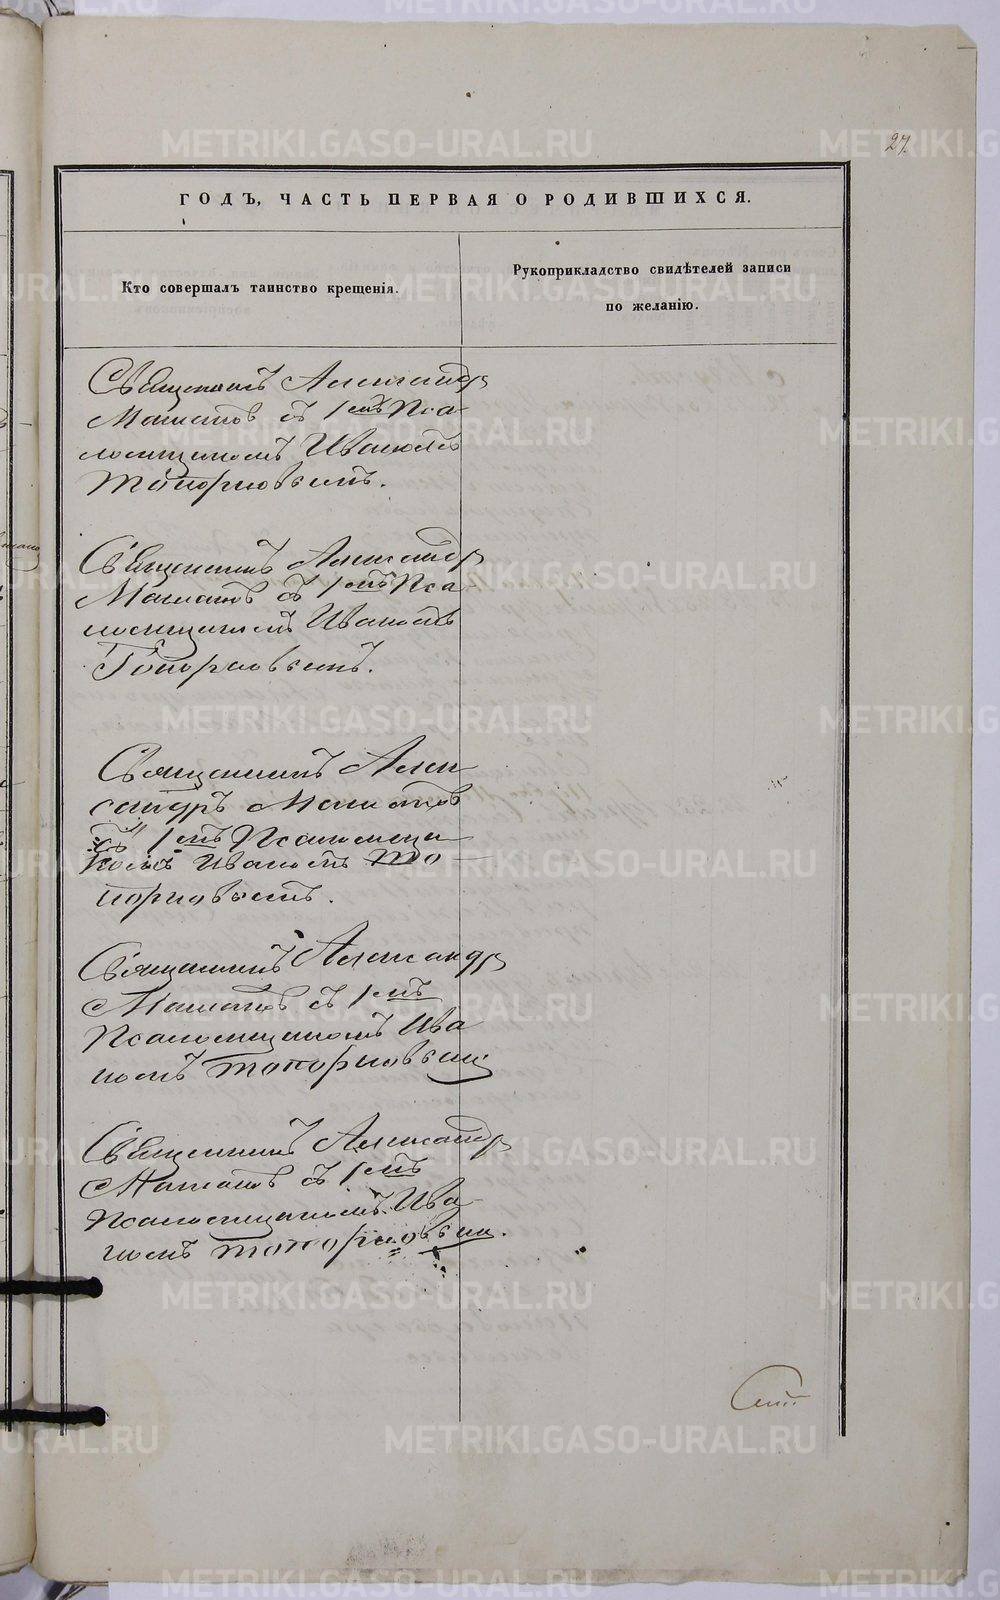 27.
ГОДЪ, ЧАСТЬ ПЕРВАЯ О РОДИВШИХСЯ.
Кто совершалъ таинство крещенія.
Рукоприкладство свидѣтелей записи
по желанію.
Священникъ Александръ
съ 1мъ Пса-
ломщикомъ Иваномъ
Топорковскимъ.
Священникъ Александръ
съ 1мъ Пса-
ломщикомъ Иваномъ
Топорковскимъ.
Священникъ Алек
сандръ
съ 1мъ Псаломщи
комъ Иваномъ То-
порковскимъ.
Священникъ Александръ
съ 1мъ
Псаломщикомъ Ива
номъ Топорковским.
Священникъ Александръ
съ 1мъ
Псаломщикомъ Ива
номъ Топорковским.
METRIKI.GASO-URAL.RU